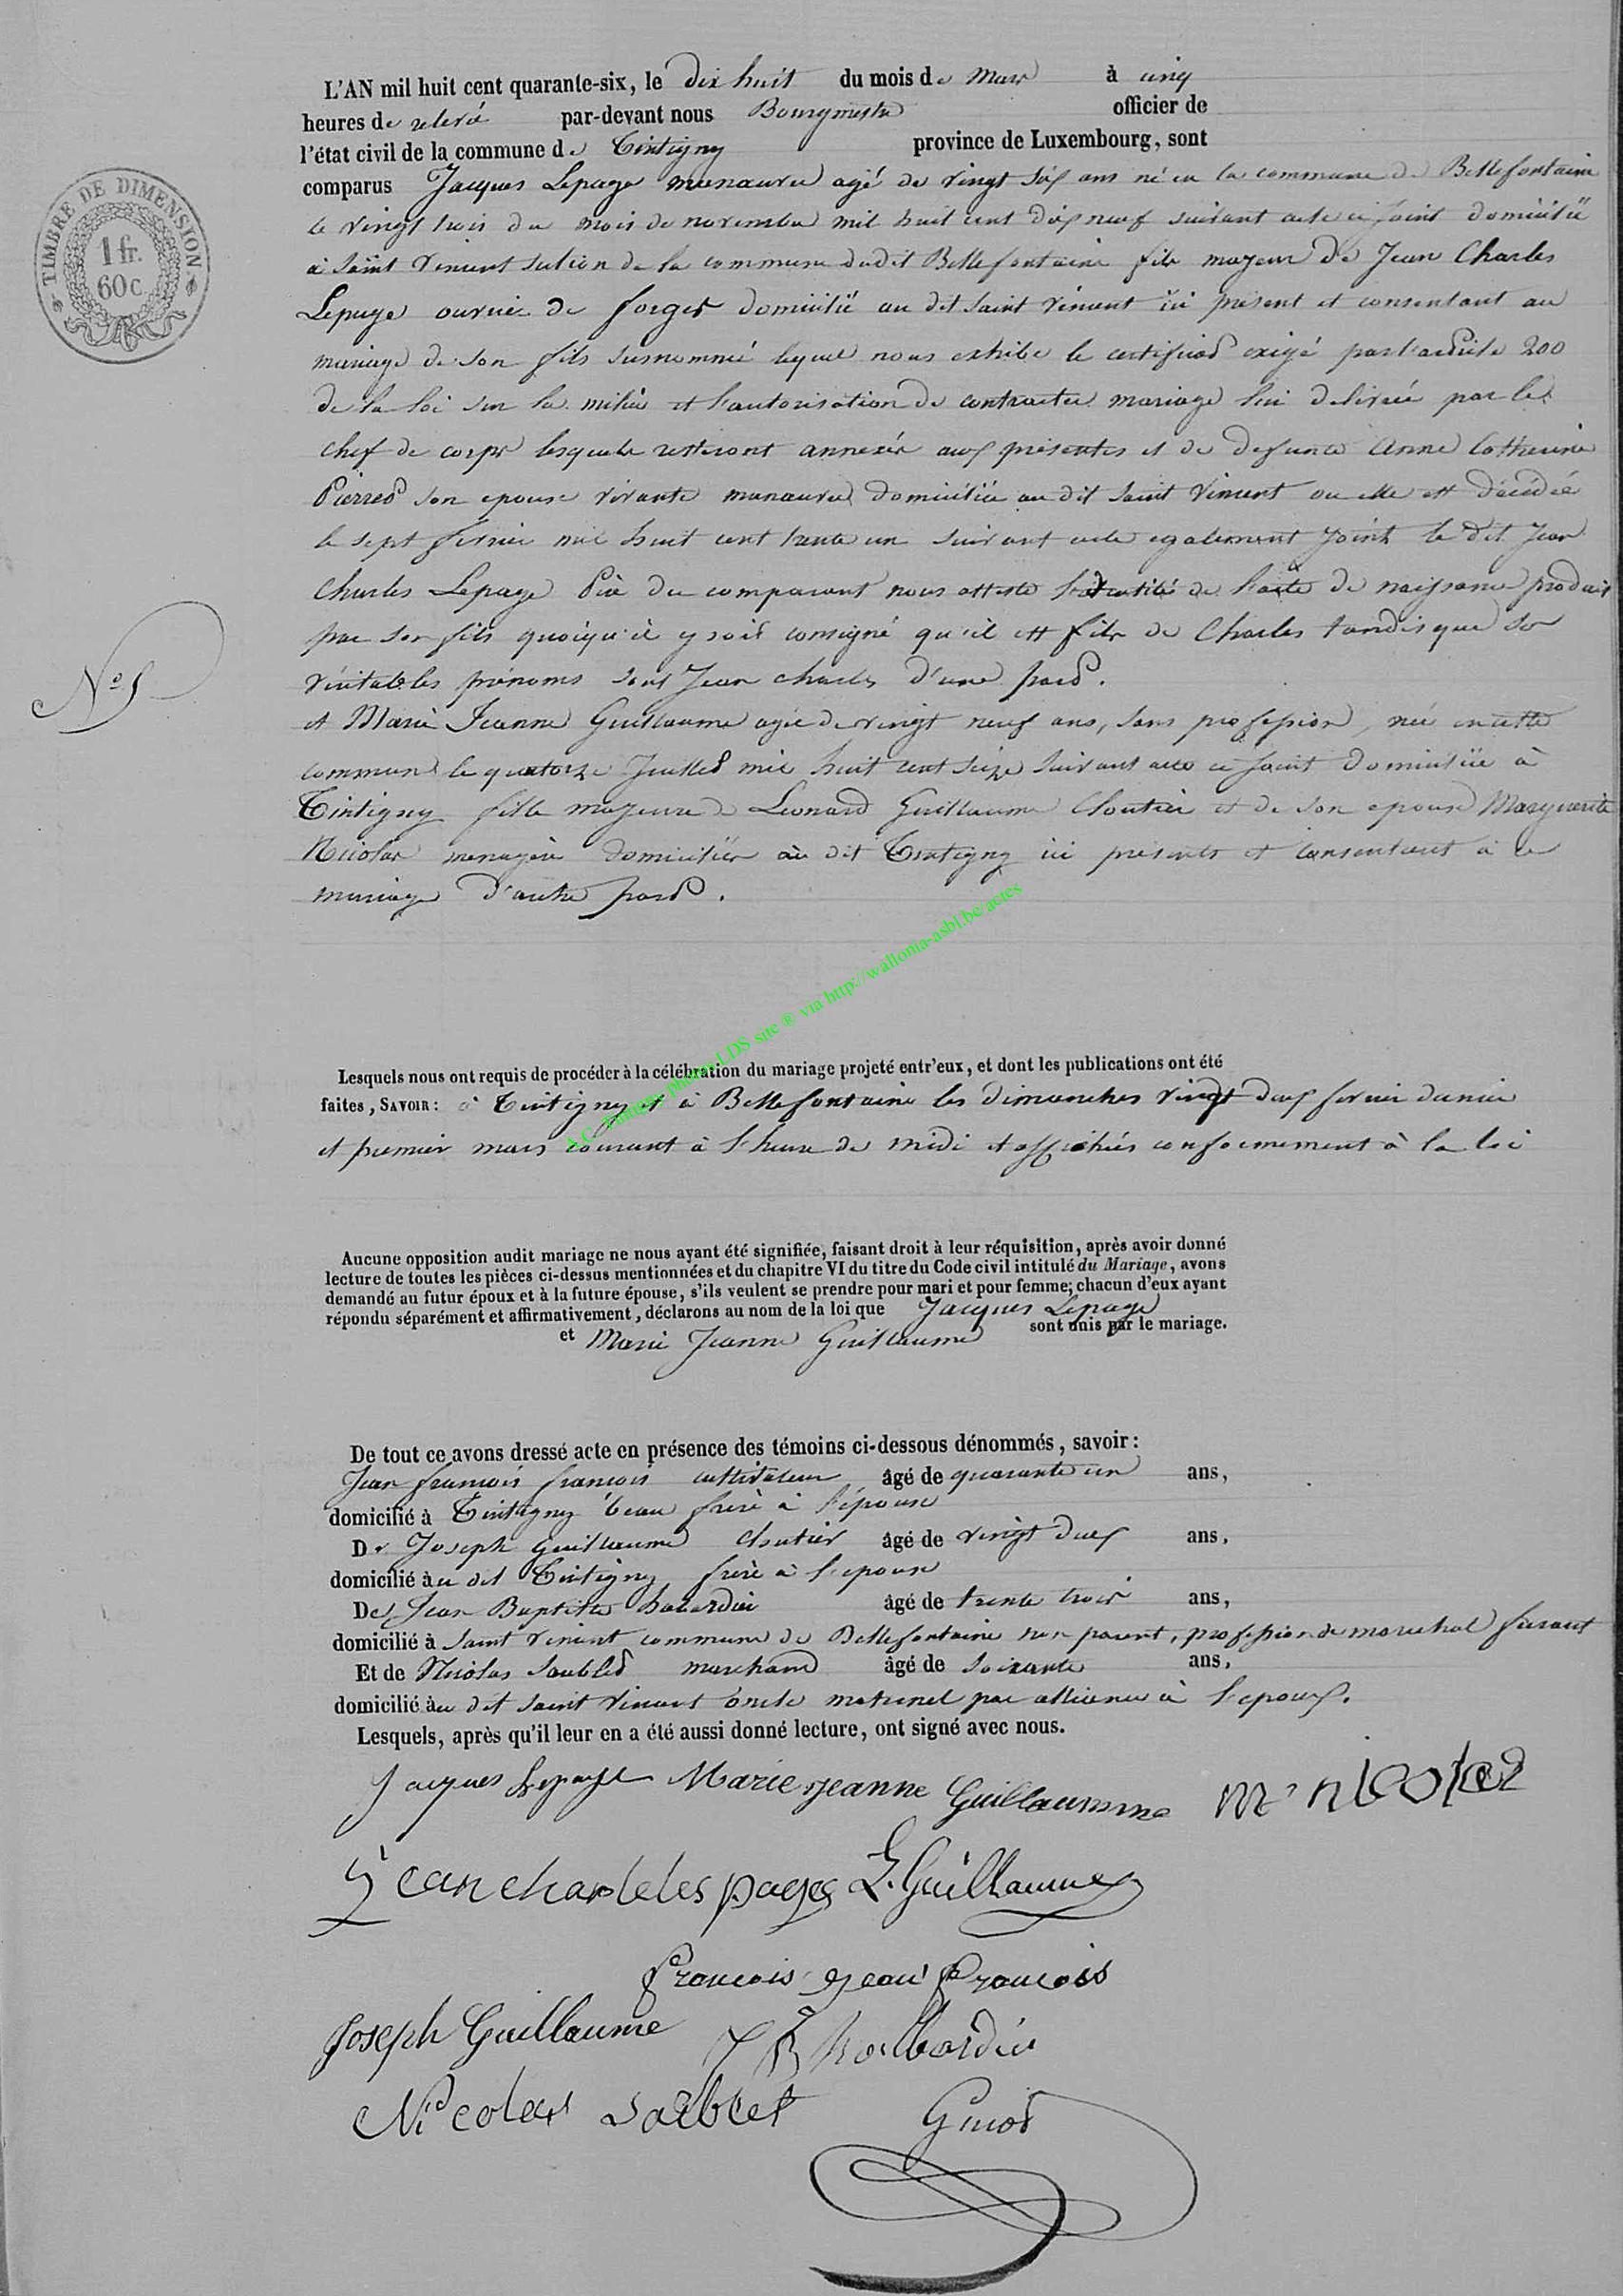 L'AN mil huit cent quarante-six, le dix huit du mois de Mars à cinq
heures de relevé par-devant nous Bourgmestre officier de
l'état civil de la commune de Tintigny province de Luxembourg, sont
comparus Jacques Lepage manœuvre agé de vingt six ans né en la commune de Bellefontaine
le vingt trois du mois de novembre mil huit cent dix neuf suivant acte ci joint domicilié
à Saint Vincent section de la commune dudit Bellefontaine fils majeur de Jean Charles
Lepage ouvrier de forges domicilié au dit Saint Vincent ici présent et consentant au
mariage de son fils susnommé lequel nous exhibe le certificat exigé par l'article 200
de la loi sur la milice et l'autorisation de contracter mariage lui delivrée par le
chef de corps lesquels resteront annexés aux présentes et de defunte Anne Catherine
Pierret son epouse vivante manœuvre domiciliée au dit Saint Vincent ou elle est décédée
le sept fevrier mil huit cent trente un suivant acte egalement joint le dit Jean
Charles Lepage Père du comparant nous atteste l'identité de l'acte de naissance produit
par son fils quoiqu'il y soit consigné qu'il est fils de Charles tandis que ses
véritables prénoms sont Jean Charles d'une part.
et Marie Jeanne Guillaume agée de vingt neuf ans, sans profession, née en cette
commune le quatorze Juillet mil huit cent seize suivant acte ci joint domiciliée à
Tintigny fille majeure de Leonard Guillaume Cloutier et de son epouse Marguerite
Nicolas menagère domiciliés au dit Tintigny ici présents et consentant à ce
mariage d'autre part.
N° 5
TIMBRE DE DIMENSION
1 fr.
60 c
A.C. Tintigny photos LDS site ® via http://wallonia-asbl.be/actes
Lesquels nous ont requis de procéder à la célébration du mariage projeté entr'eux, et dont les publications ont été
faites, SAVOIR: à Tintigny et à Bellefontaine les dimanches vingt deux fevrier dernier
et premier mars courant à l'heure de midi et affichées conformement à la loi
Aucune opposition audit mariage ne nous ayant été signifiée, faisant droit à leur réquisition, après avoir donné
lecture de toutes les pièces ci-dessus mentionnées et du chapitre VI du titre du Code civil intitulé du Mariage, avons
demandé au futur époux et à la future épouse, s'ils veulent se prendre pour mari et pour femme; chacun d'eux ayant
répondu séparément et affirmativement, déclarons au nom de la loi que Jacques Lepage
et Marie Jeanne Guillaume sont unis par le mariage.
De tout ce avons dressé acte en présence des témoins ci-dessous dénommés, savoir:
Jean francois francois cultivateur âgé de quarante un ans,
domicilié à Tintigny beau frère à l'épouse
De Joseph Guillaume Cloutier âgé de vingt deux ans,
domicilié au dit Tintigny frère à l'epouse
De Jean Baptiste habardin âgé de trente trois ans,
domicilié à Saint Vincent commune de Bellefontaine non parent, profession de marechal ferant
Et de Nicolas Saublet marchand âgé de soixante ans,
domicilié au dit Saint Vincent oncle maternel par alliance à l'epoux.
Lesquels, après qu'il leur en a été aussi donné lecture, ont signé avec nous.
Jacques Lepage Marie jeanne Guillaumme m nicolas
jean charleles pages L. Guillaume
francois jean francois
Joseph Guillaume J B
Nicolas saublet